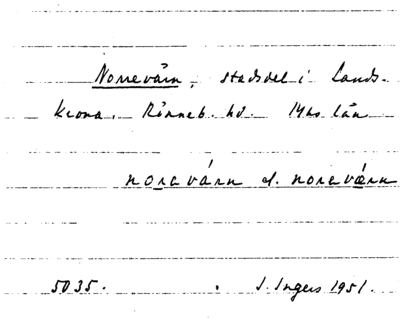 Norrevärn, stadsdel i Lands-
krona. Rönneb. hd. Mhs. län
noravárn el. noravæ̀rn
5035. I. Ingers 1951.